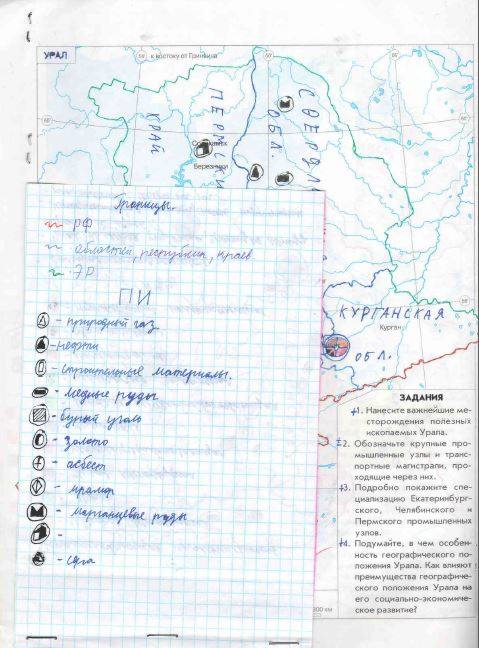 УРАЛ
к востоку от Гринвича
ПЕРМСКИ
КРАЙ
СВЕРДЛ
ОБЛ.
Березники
КУРГАНСКАЯ
Курган
ОБЛ.
Границы.
- РФ
- областей, республик, краев
- ЭР
ПИ
- природный газ
- нефти
- строительные материалы.
- медные руды
- бурый уголь
- золото
- асбест
- мрамор
- марганцевые руды
-
ЗАДАНИЯ
1. Нанесите важнейшие ме-
сторождения полезных
ископаемых Урала.
2. Обозначьте крупные про-
мышленные узлы и транс-
портные магистрали, про-
ходящие через них.
3. Подробно покажите спе-
циализацию Екатеринбург-
ского, Челябинского и
Пермского промышленных
узлов.
4. Подумайте, в чем особен-
ность географического по-
ложения Урала. Как влияют
преимущества географиче-
ского положения Урала на
его социально-экономиче-
ское развитие?
300 км